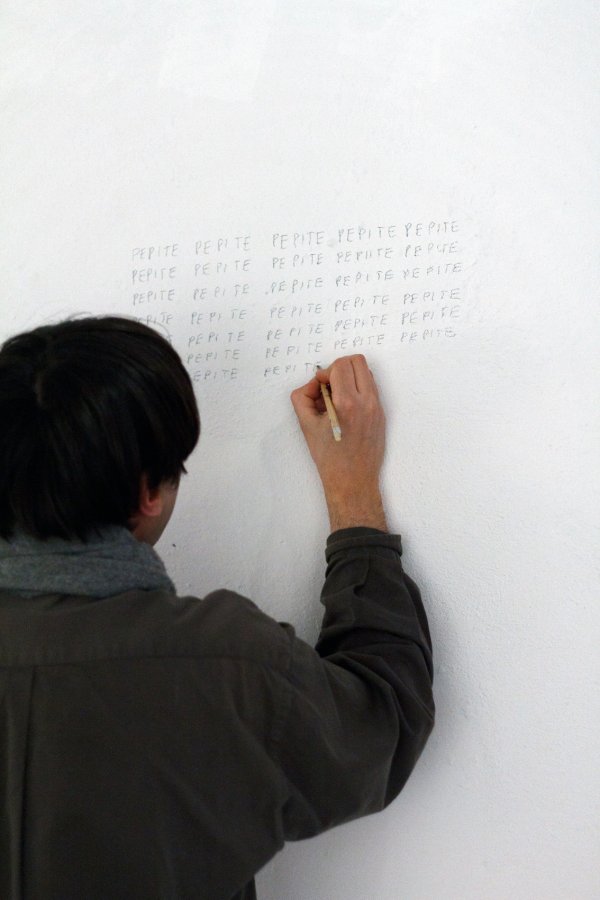 PEPITE PEPITE PEPITE PEPITE PEPITE
PEPITE PEPITE PEPITE PEPITE PEPITE
PEPITE PEPITE PEPITE PEPITE PEPITE
PEPITE PEPITE PEPITE PEPITE PEPITE
PEPITE PEPITE PEPITE PEPITE
PEPITE PEPITE PEPITE PEPITE
PEPITE PEPITE